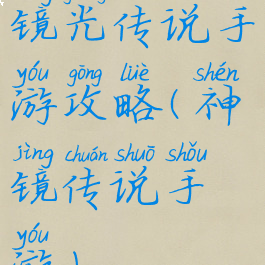 镜光传说手
yóu gōng lüè shén
游攻略(神
jìng chuán shuō shǒu
镜传说手
yóu
游)